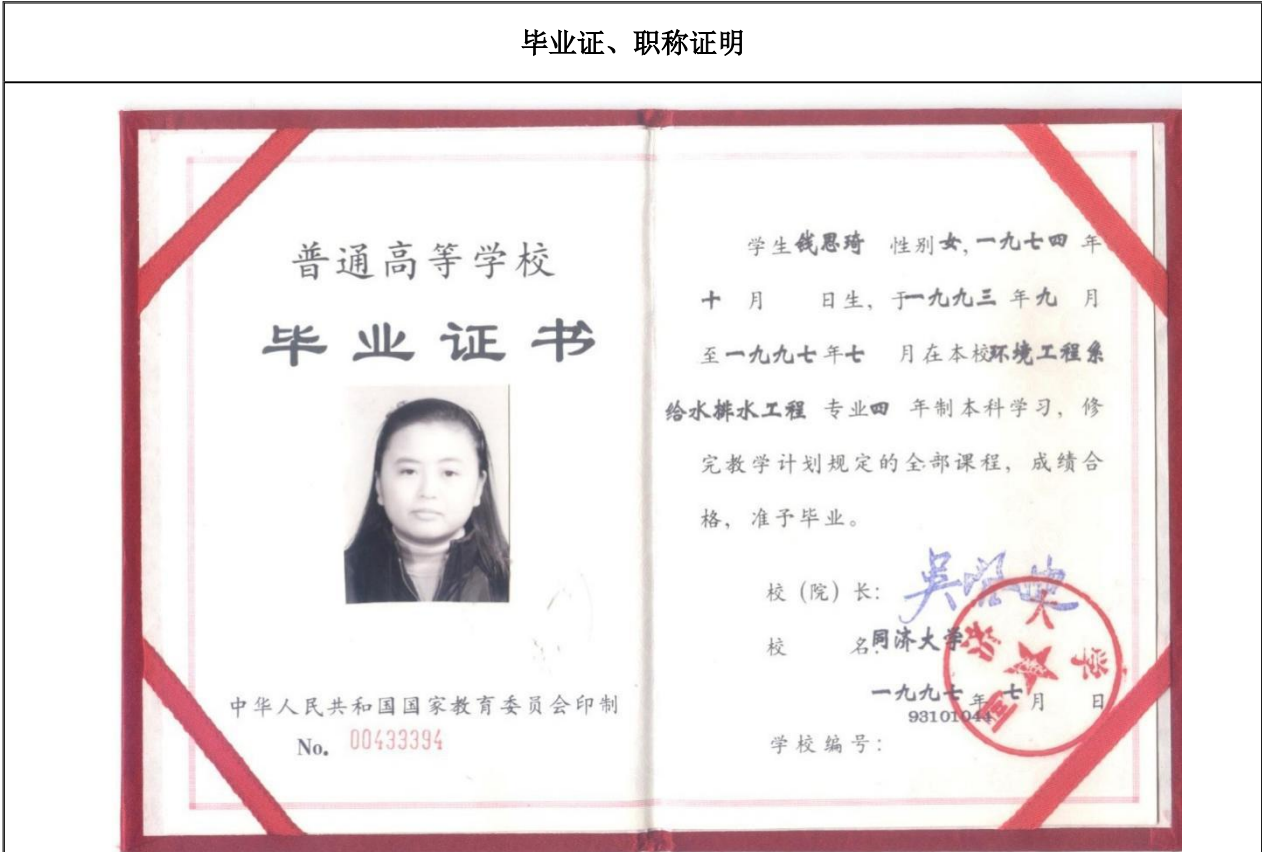 毕业证、职称证明
普通高等学校
毕业证书
中华人民共和国国家教育委员会印制
No. 00433394
学生钱思琦 性别女,一九七四 年
十 月 日生, 于一九九三 年九 月
至一九九七年七 月在本校环境工程系
给水排水工程 专业四 年制本科学习, 修
完教学计划规定的全部课程, 成绩合
格, 准予毕业。
校(院)长:
校 名:同济大学
一九九七年七月 日
93101044
学校编号:
同济大学